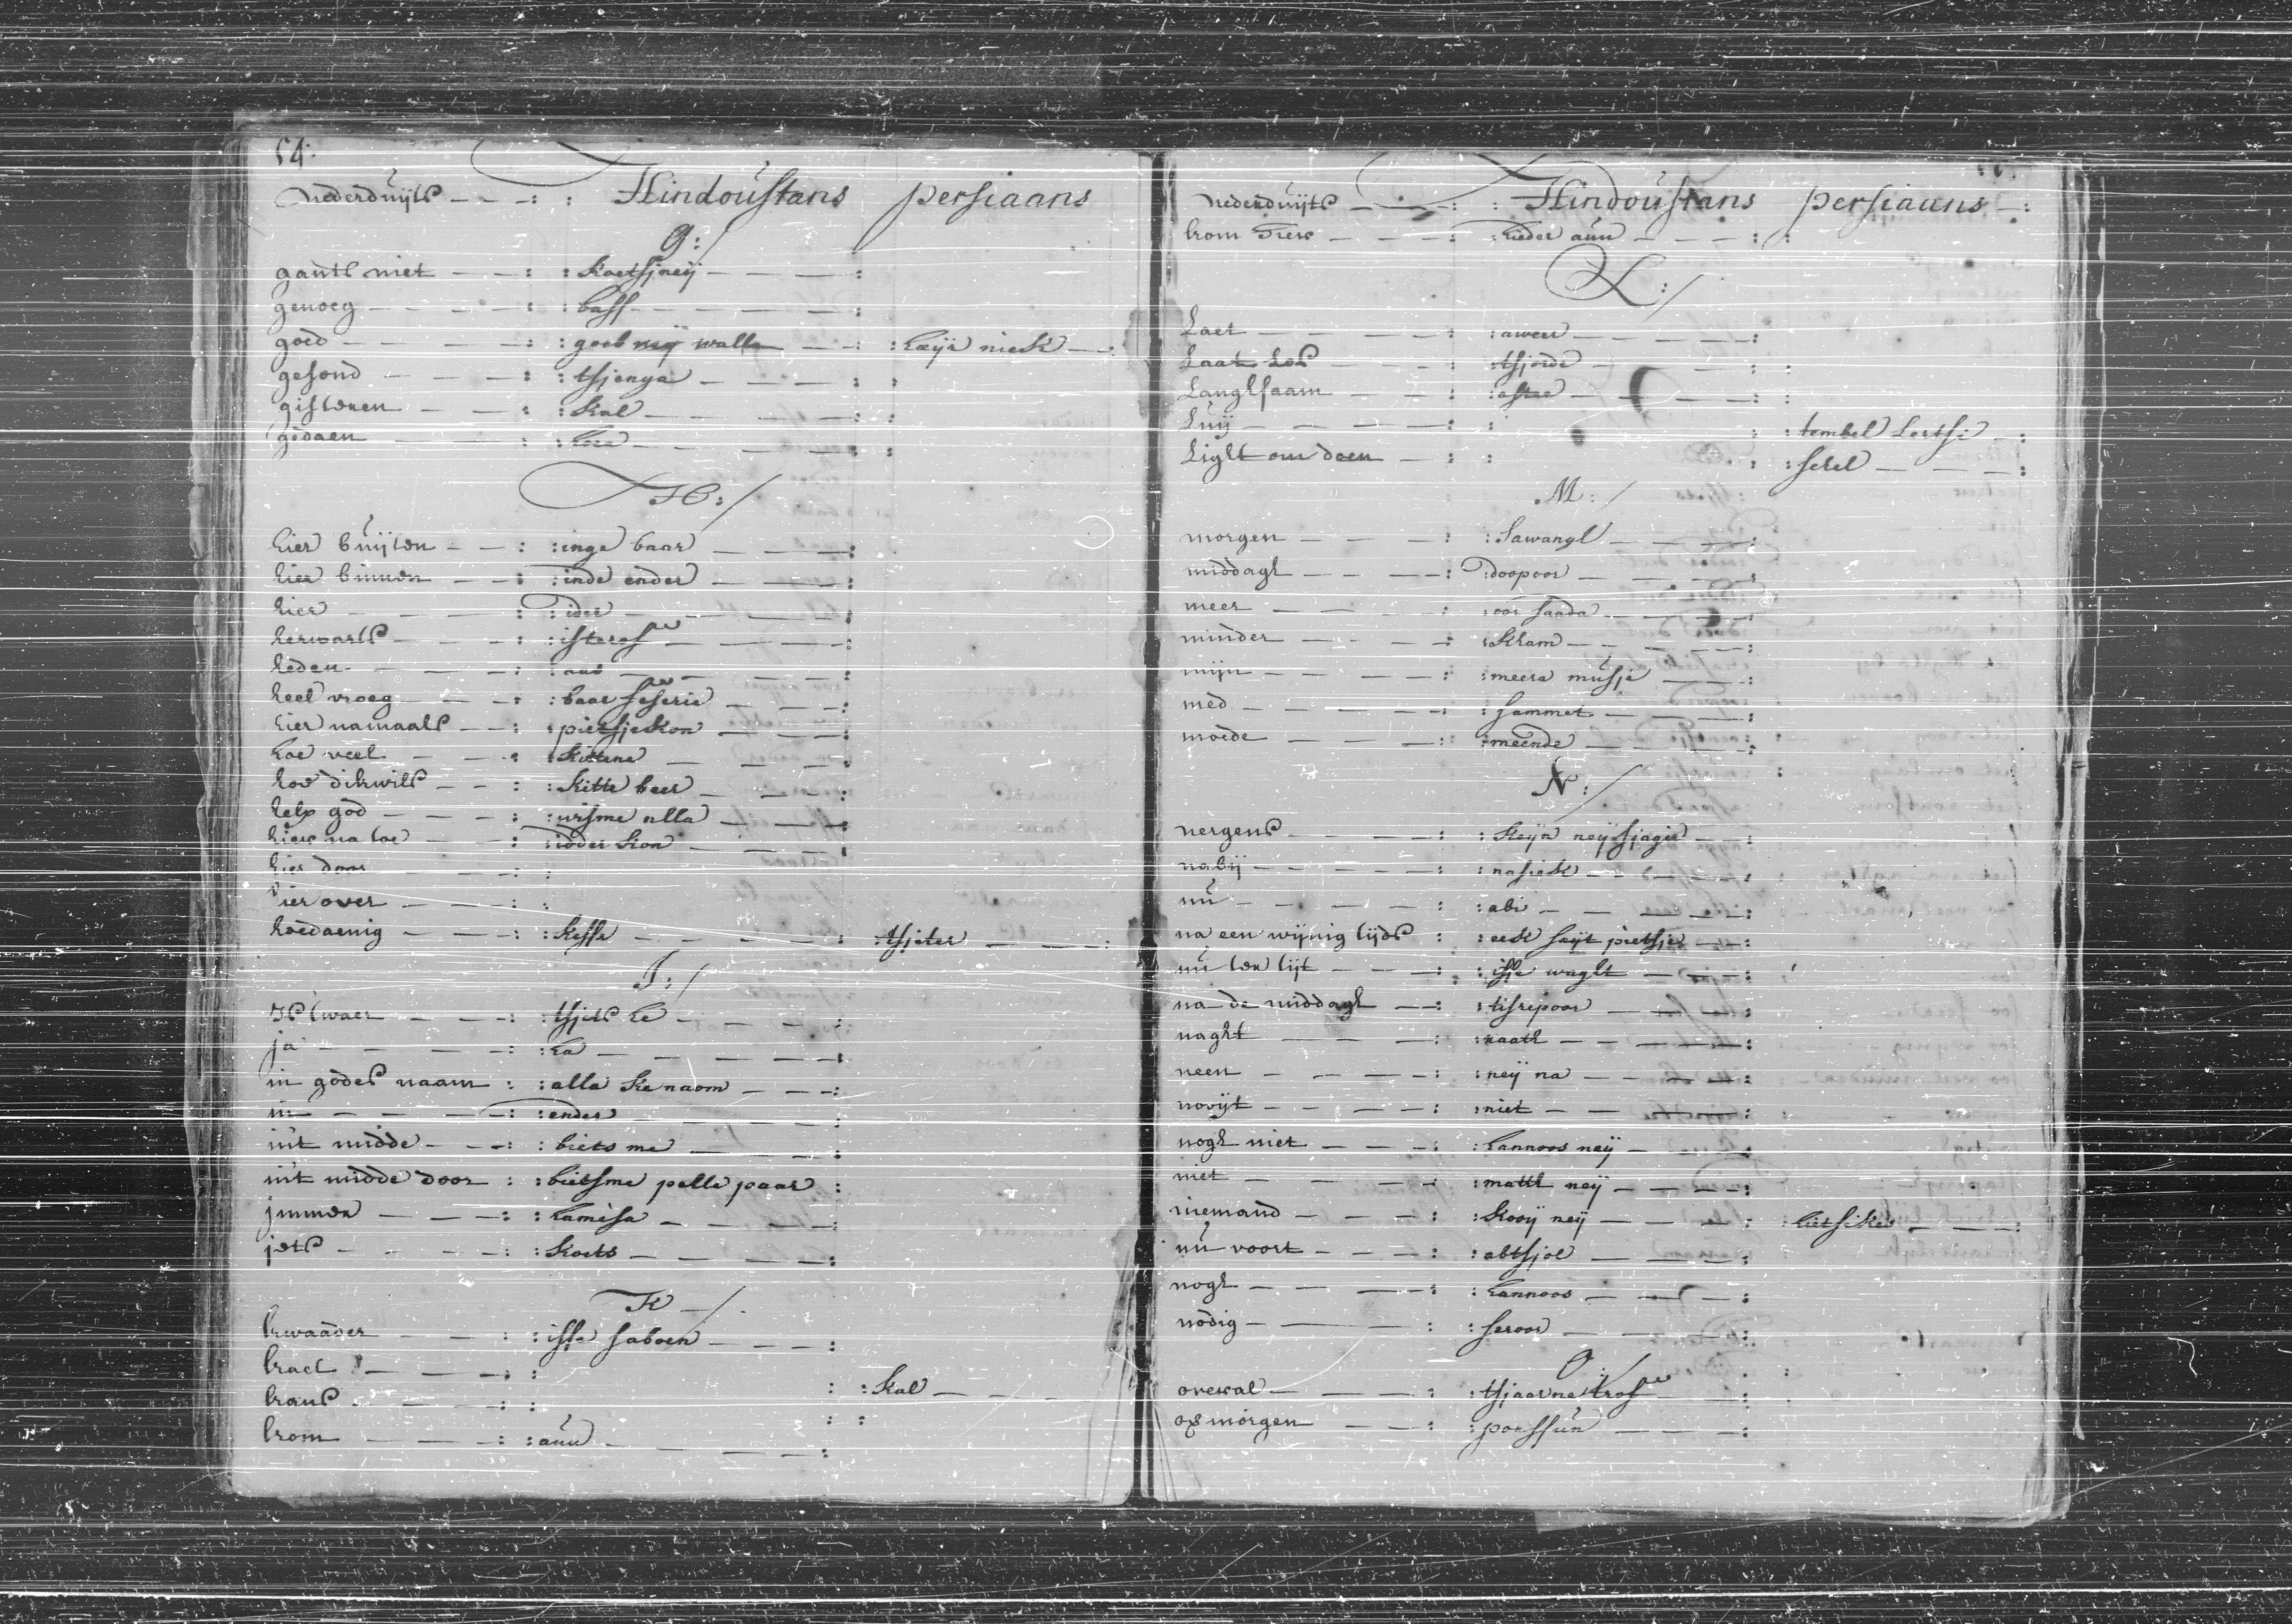 54:
Nederduijts - - -: : Hindoustans persiaans
G:/
gants niet - - -: : koetsjneij - - - -:
genoeg - - - -: : bass - - - -
goed - - - -: : goeb neij walla - - : haijr niek -:
gesond - - - -: : tsjenga - - - - : :
gisteren - - -: : kal - - - - : :
gedaen - - -: : hoea - - - - : :
H:/
hier buijten - - -: : inge baar - - - -:
hier binnen - - -: : inde ender - - - -:
hier - - - -: : ider - - - -:
herwarts - - -: : isteraf - - - -:
heden - - - -: : aad - - - -:
heel vroeg - - -: : baar feserie - - -:
hier namaals - -: : pietsjekon - - - -:
hoe veel - - -: : kittene - - - -:
hoe dikwils - - : : kitte beer - - - -:
help god - - - -: : wisme alla - - - -:
hier na toe - - -: : idder kon - - - -:
hier door - - -: :
hier over - - - -: :
hoedaenig - - - -: : kesse - - - - : : tsjeter - - -:
I:/
is waer - - -: : tsjets he - - - -:
ja - - - - -: : ha - - - - -:
in godes naam : : alla ke naom - - -:
in - - - - -: : ender - - - -:
int midde - - -: : biets me - - - -:
int midde door : : bietsme pelle paar :
jmmer - - - -: : hamesa - - - -:
jets - - - -: : koets - - - -:
K -/.
kwaader - - - : : isse saboen - - -:
krael - - - -: :
krans - - - : : : : kal - - -
krom - - - -: : auw - - - -:
Nederduijts - - -: : Hindoustans persiaans -:
krom - - - -: : hieder aun - - - : :
L:/
Laet - - - - : : aweer - - - -:
Laat Los - - - : : tsjorde - - - : :
Langhsaam - - : : astae - - - : :
Luij - - - - : : : : tembel -:
Light om doen -: : : : sehel - - -:
M:/
morgen - - - : : Sawangh - - -:
middagh - - - -: : doopoor - - - -:
meer - - - -: : oor saada - - - -:
minder - - - -: : kham - - - -:
mijn - - - - -: : meera musje - - -:
med - - - - -: : sammet - - - -:
moede - - - -: : meende - - - -:
N:/
nergens - - - : : keijn neij sjagie - -:
nabij - - - - : : nasiek - - - -:
nu - - - - : : abi - - - -:
na een wijnig tijds : : eek saijt pietsje - -:
nu ter tijt - - -: : isse waght - - -:
na de middagh - -: : tisrepoor - - - -:
naght - - - -: : raath - - - -:
neen - - - -: : neij na - - - -:
nooijt - - - -: : niet - - - -:
nogh niet - - - -: : hannoos neij - - -:
niet - - - - : : matth neij - - -:
niemand - - - -: : kooij neij - - - : : hietsikes - - -:
nu voort - - - : : abtsjol - - -:
nogh - - - - : : hannoos - - - -:
nodig - - - : : seroor - - - -:
O:/
overal - - - : : tsjaarne traf - - : :
overmorgen - - : : porssun - - -: